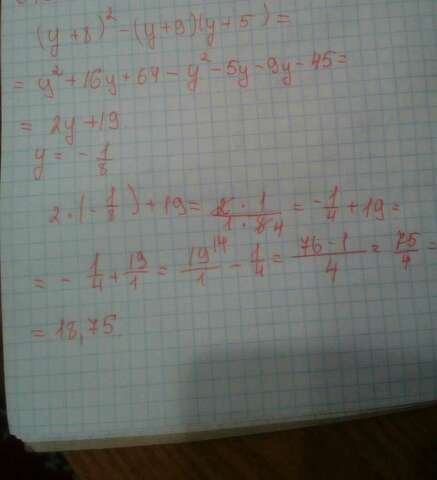 (y+8)² - (y+9)(y+5) =
= y² + 16y + 64 - y² - 5y - 9y - 45 =
= 2y + 19
y = - 1/8
2 · (- 1/8) + 19 = 2 · 1 / 1 · 8 4 = - 1/4 + 19 =
= - 1/4 + 19/1 = 19 |4 / 1 - 1/4 = 76 - 1 / 4 = 75/4 =
= 18,75